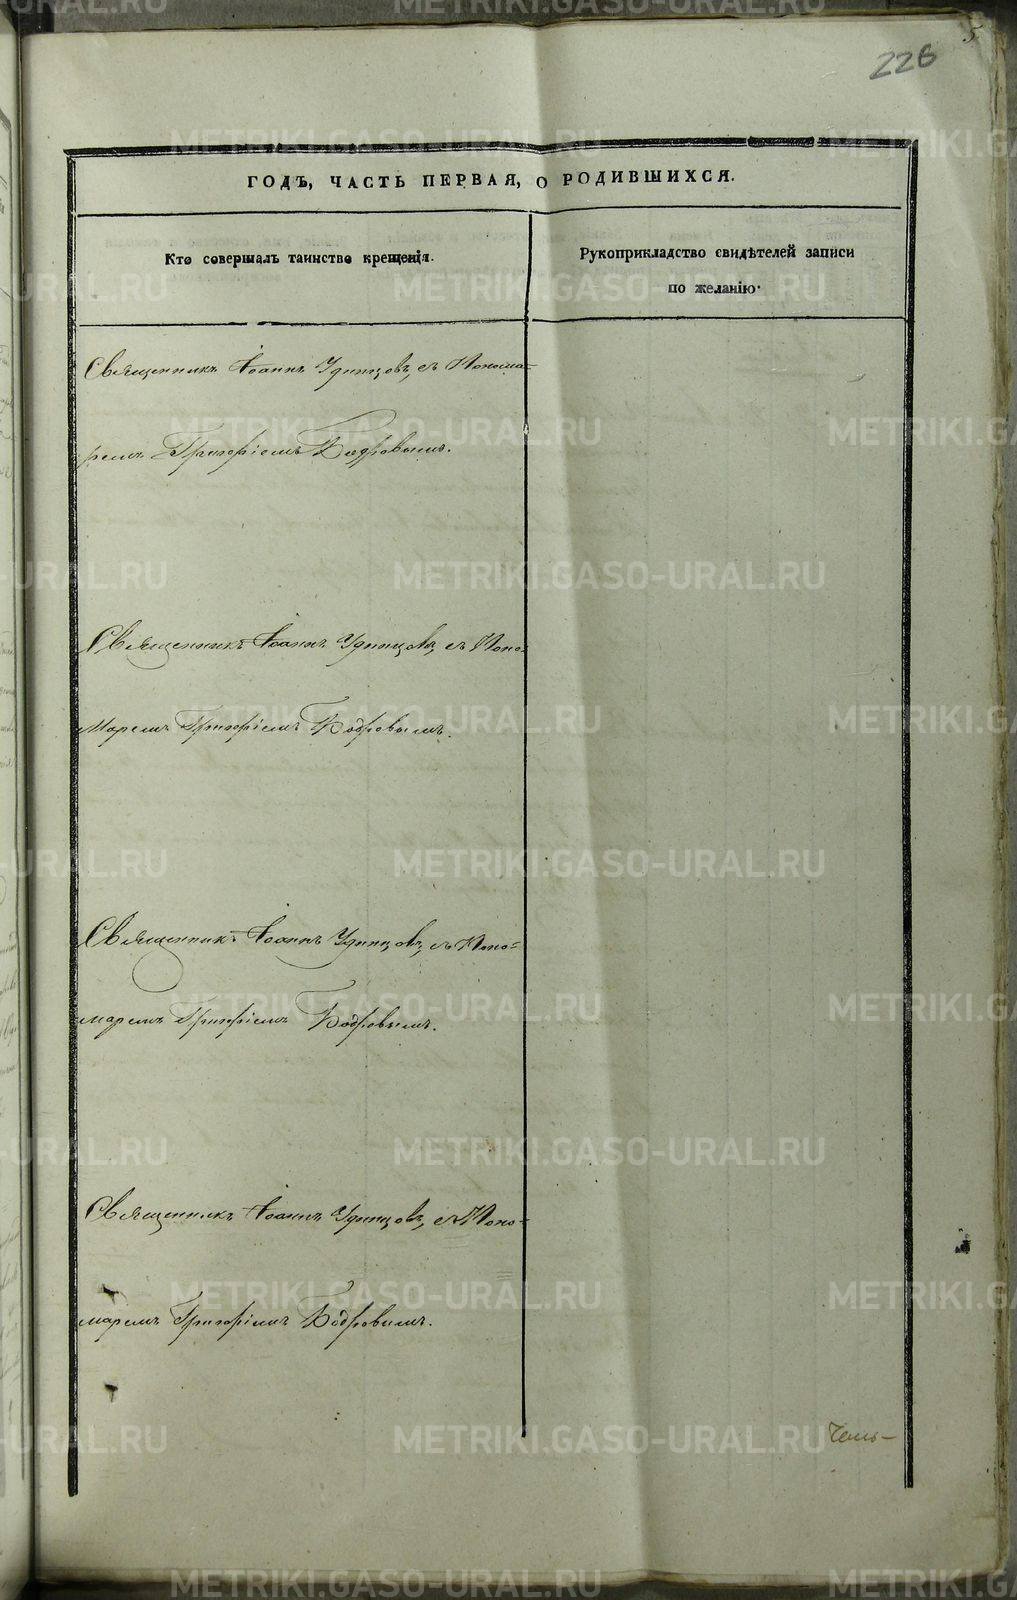 5
226
ГОДЪ, ЧАСТЬ ПЕРВАЯ, О РОДИВШИХСЯ.
Кто совершалъ таинство крещенія.
Рукоприкладство свидѣтелей записи
по желанію.
Священникъ Іоаннъ Удинцовъ, съ Понома=
ремъ Григоріемъ Бодровымъ.
Священникъ Іоаннъ Удинцовъ, съ Поно-
маремъ Григоріемъ Бодровымъ.
Священникъ Іоаннъ Удинцовъ, съ Поно=
маремъ Григоріемъ Бодровымъ.
Священникъ Іоаннъ Удинцовъ, съ Поно-
маремъ Григоріемъ Бодровымъ.
METRIKI.GASO-URAL.RU